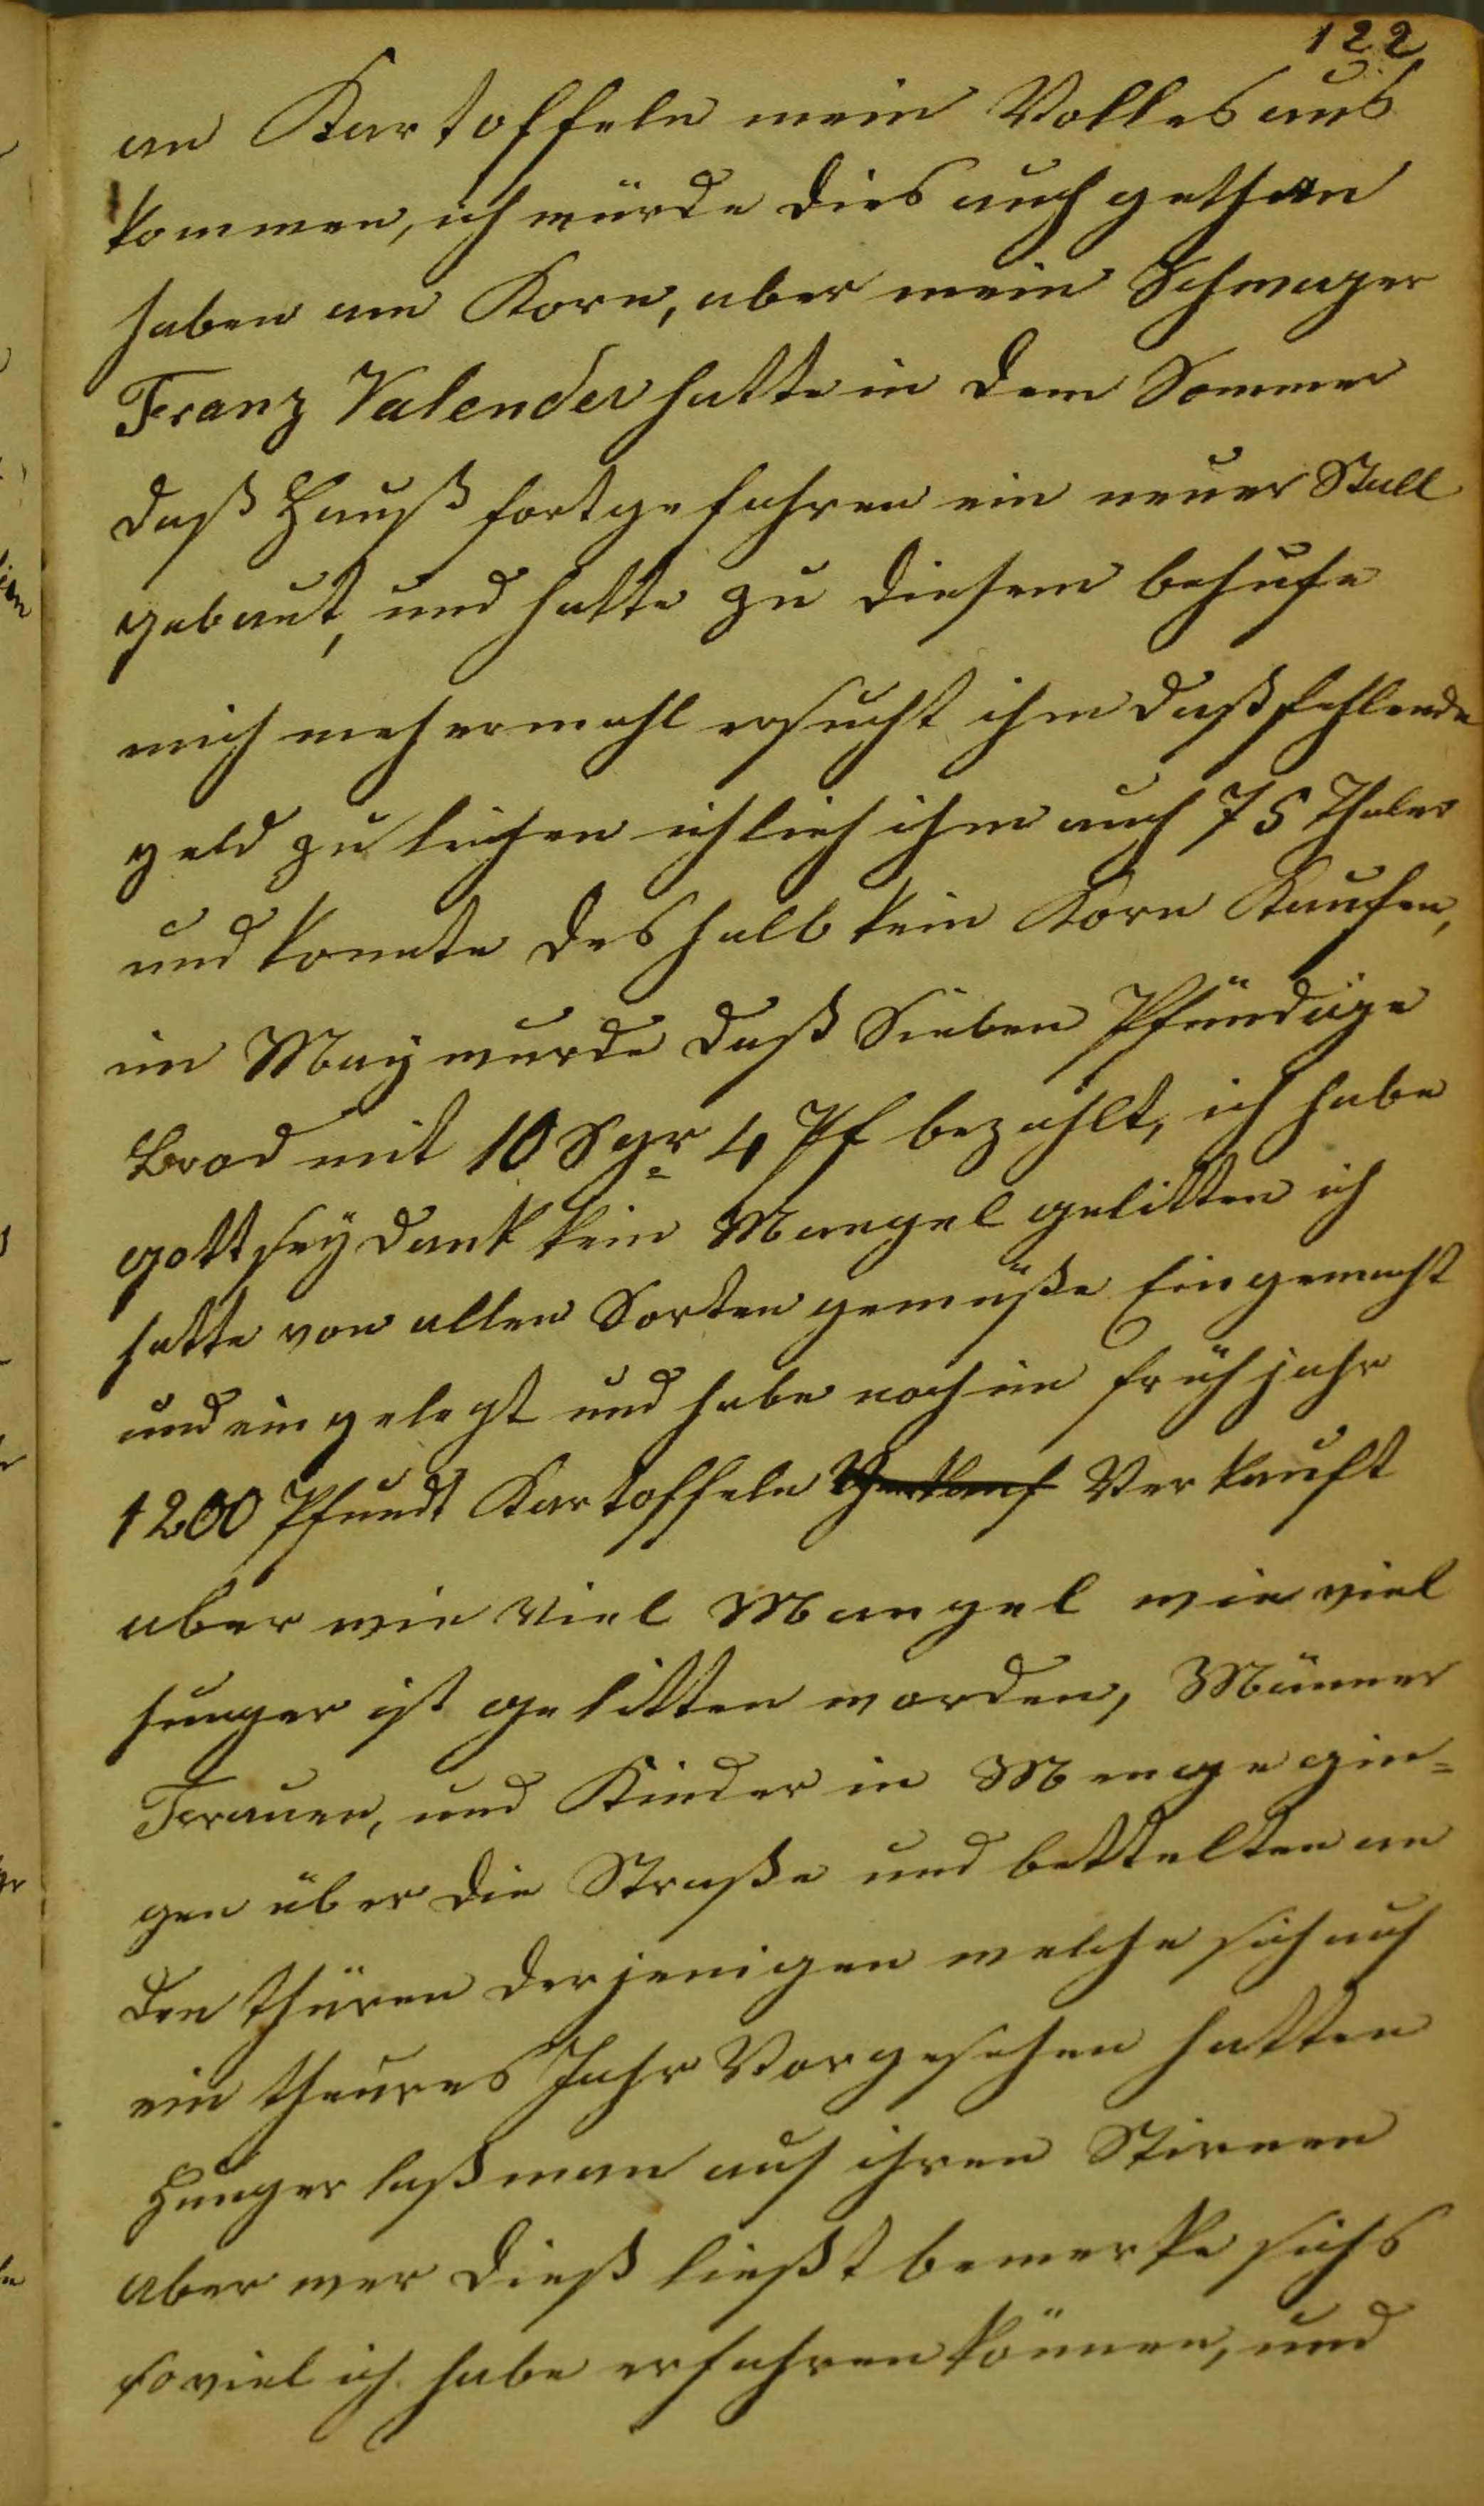 122
an Kartoffeln mein Volles aus
kommen, ich würde dies auch gethan
haben am Korn, aber mein Schwager
Franz Valender hatte in dem Sommer
daß Hauß fortgefahren ein neuer Stall
gebaut, und hatte zu diesem behufe
mich mehrmahl ersucht ihm daß fehlende
geld zu leihen ich lieh ihm auch 75 Thaler
und konnte deshalb kein Korn Kaufen,
im May wurde daß Sieben Pfündige
Brod mit 10 Sgr 4 Pf bezahlt, ich habe
gott sey dank kein Mangel gelitten ich
hatte von allen Sorten gemüße Eingemacht
und eingelegt und habe noch im frühjahr
1200 Pfundt Kartoffeln Verkauf Verkauft
aber wie Viel Mangel wie viel
hunger ist gelitten worden, Männer
Frauen, und Kinder in Menge gin=
gen über die Straße und bettelten an
den thüren derjenigen welche sich auf
ein theures Jahr Vorgesehen hatten
Hunger laß man auf ihren Stirnen
aber wer dieß ließt bemerke sichs
so viel ich habe erfahren können, und